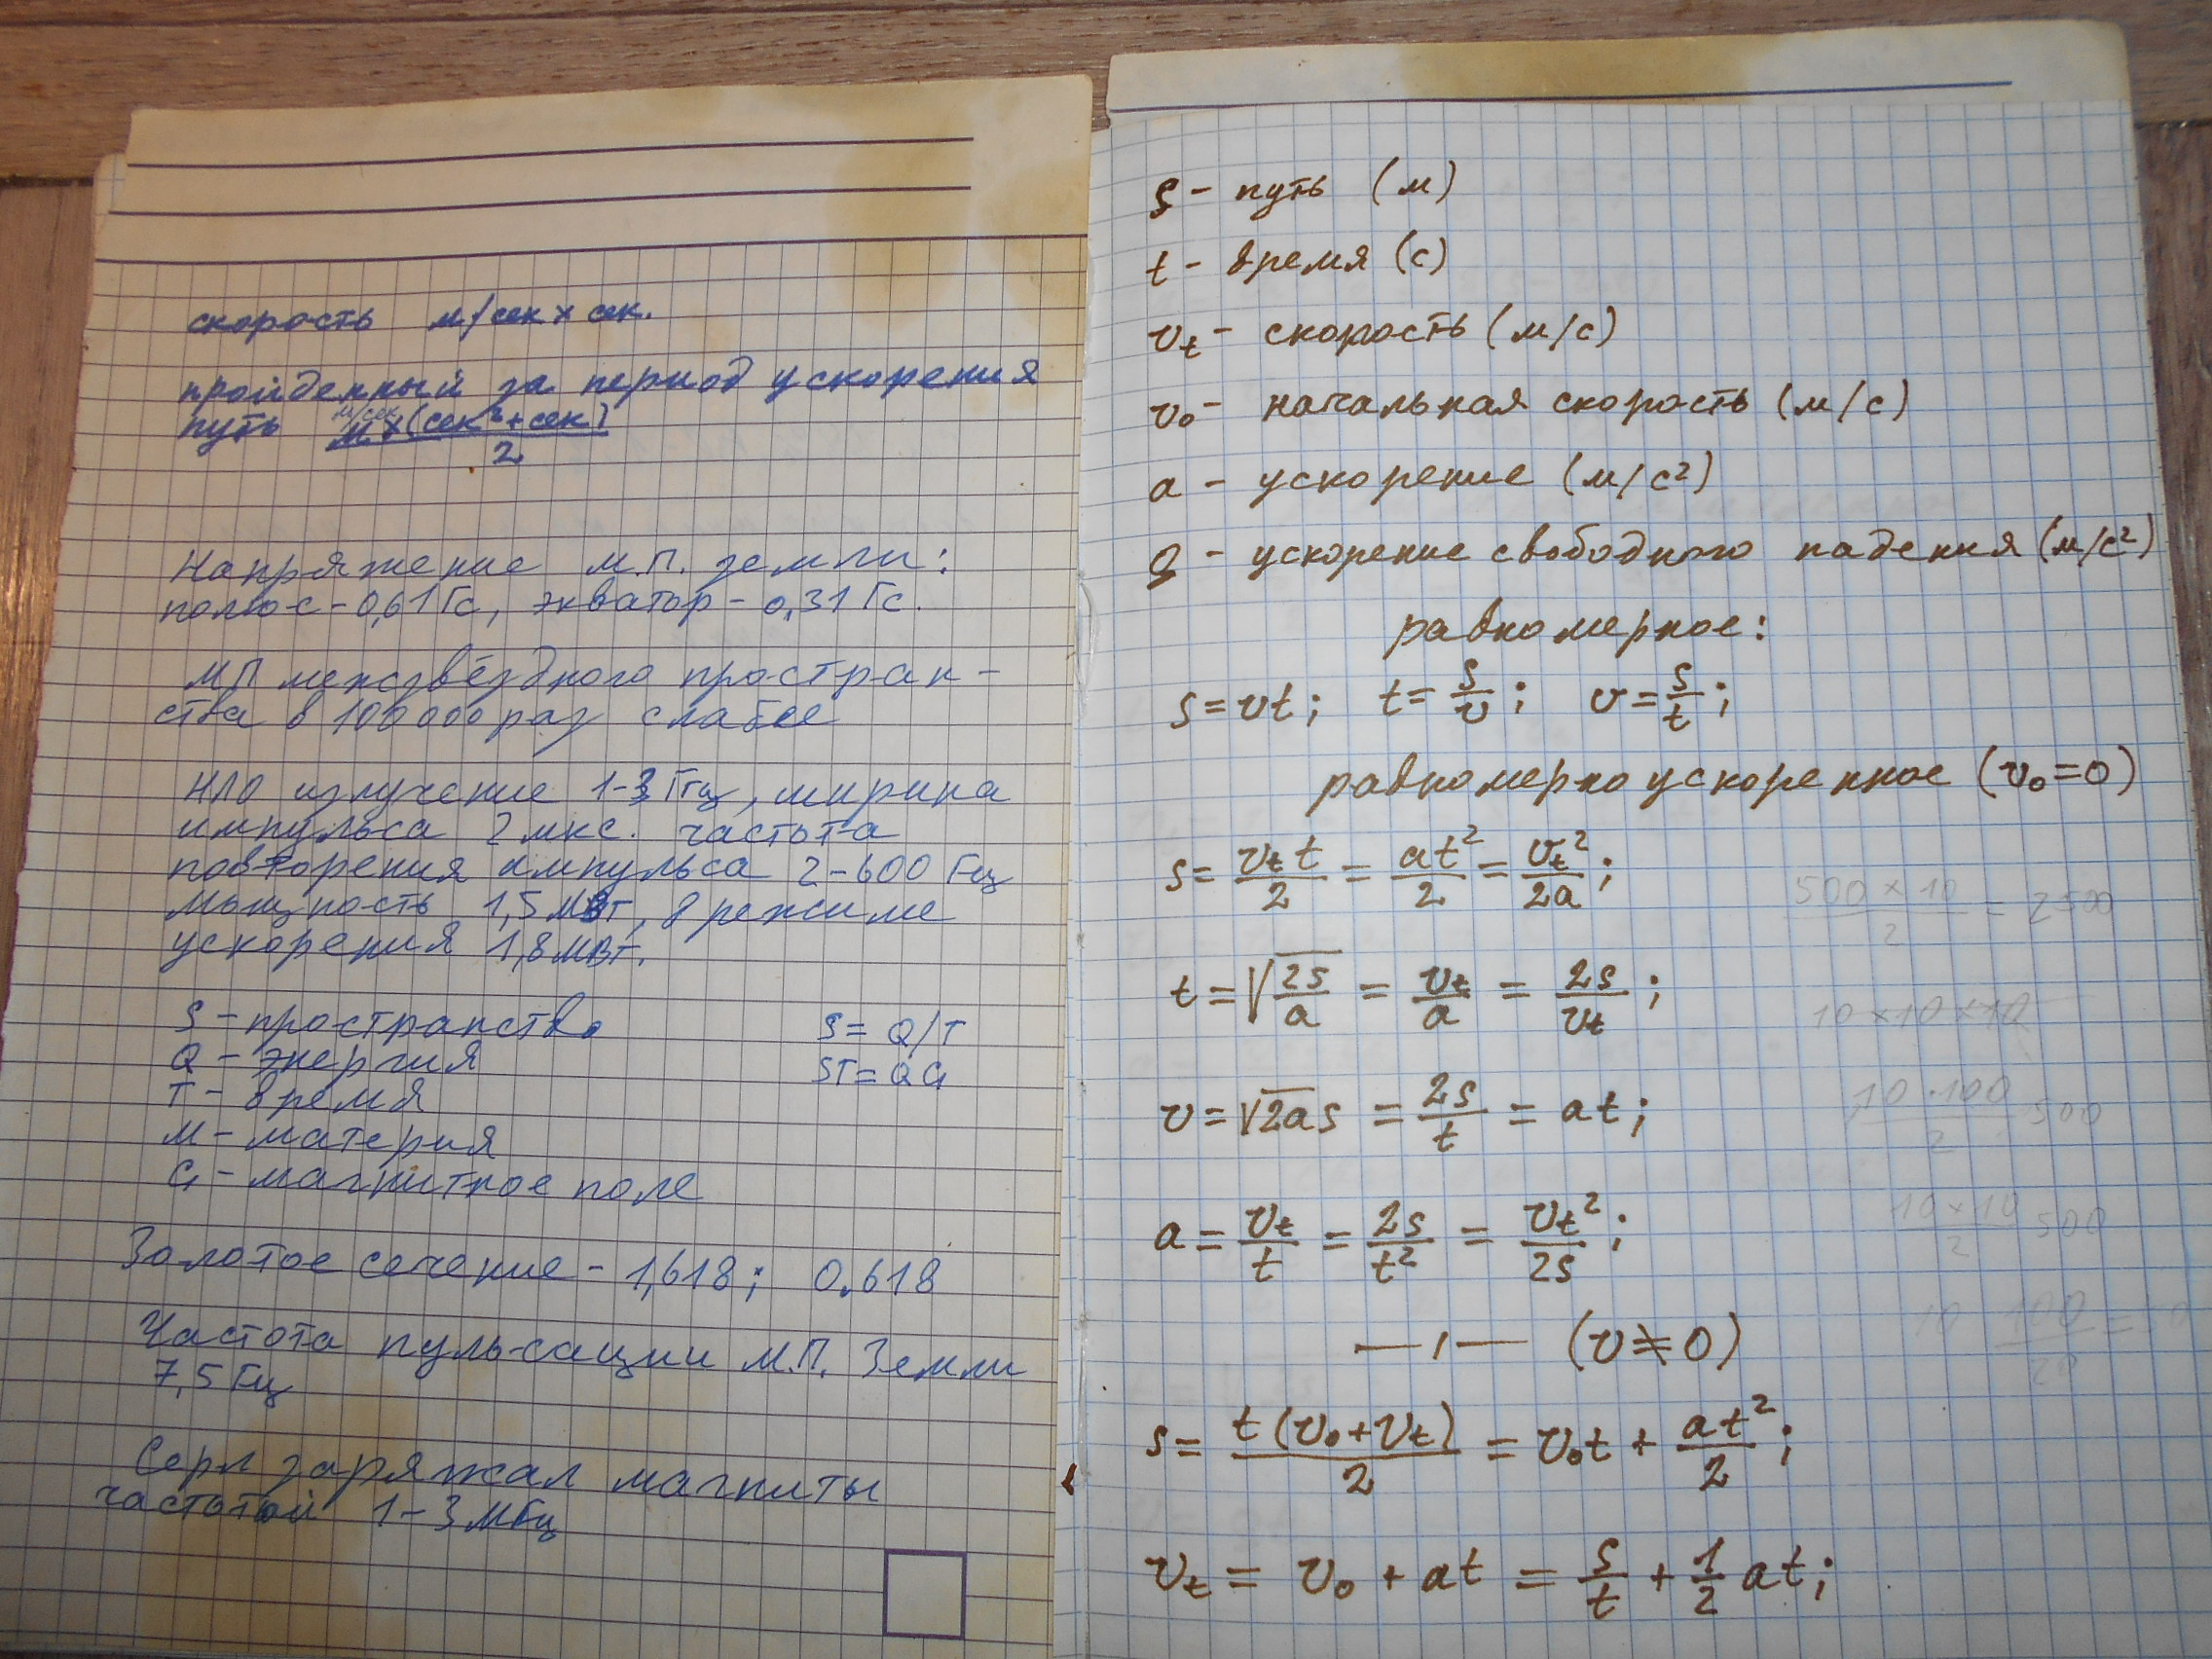 скорость м/сек × сек.
пройденный за период ускорения
м/сек
путь м×(сек²+сек)/2
Напряжение м.п. земли:
полюс - 0,61 Гс, экватор - 0,31 Гс.
МП межзвёздного простран-
ства в 100 000 раз слабее
НЛО излучение 1-3 Ггц, ширина
импульса 2 мкс. частота
повторения импульса 2-600 Гц
мощность 1,5 МВт, в режиме
ускорения 1,8 МВт.
S - пространство S = Q/T
Q - энергия ST = QG
T - время
М - материя
G - магнитное поле
Золотое сечение - 1,618; 0.618
Частота пульсации м.п. Земли
7,5 Гц
Серл заряжал магниты
частотой 1-3 МГц
S - путь (м)
t - время (с)
v_t - скорость (м/с)
v₀ - начальная скорость (м/с)
a - ускорение (м/с²)
g - ускорение свободного падения (м/с²)
равномерное:
s = vt; t = s/v; v = s/t;
равномерно ускоренное (v₀=0)
s = v_t t/2 = at²/2 = v_t²/2a;
500 × 10/2 = 2500
t = √(2s/a) = v_t/a = 2s/v_t;
10 × 10 × 10
v = √2as = 2s/t = at;
10 · 100/2 500
a = v_t/t = 2s/t² = v_t²/2s;
10 × 10/2 500
— ı — (v ≠ 0)
s = t(v₀+v_t)/2 = v₀t + at²/2;
v_t = v₀ + at = s/t + 1/2 at;